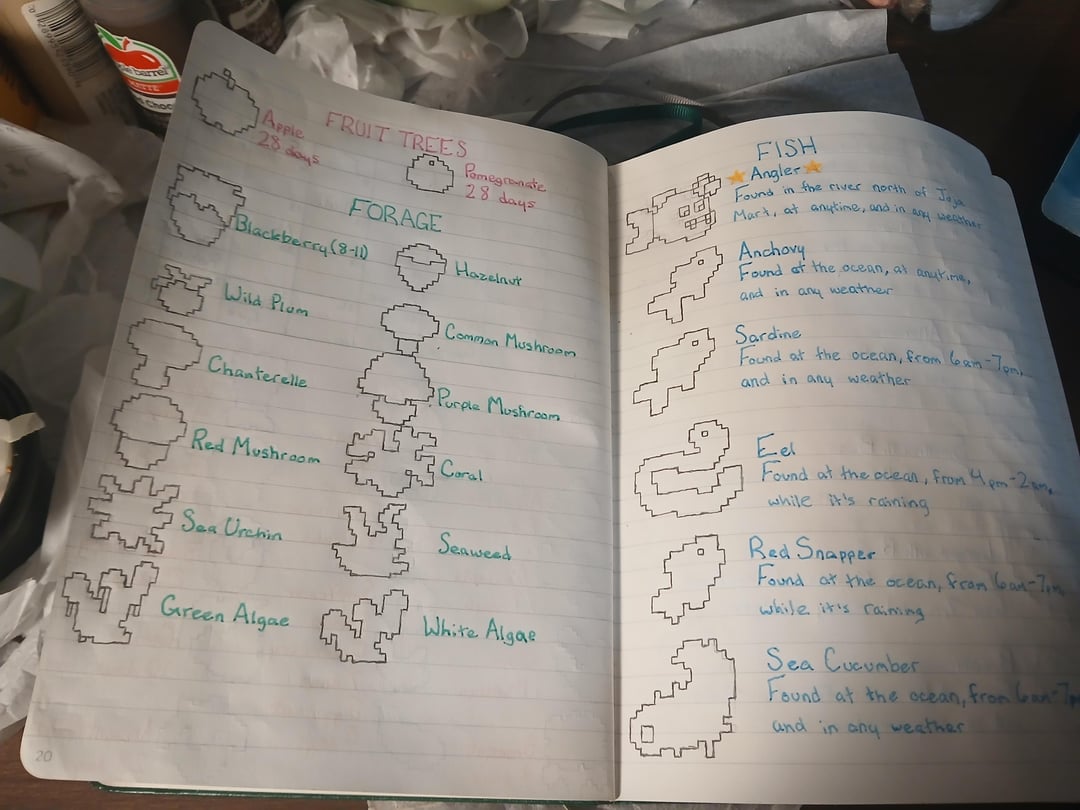 FRUIT TREES
Apple
28 days
Pomegranate
28 days
FORAGE
Blackberry (8-11)
Hazelnut
Wild Plum
Common Mushroom
Chanterelle
Purple Mushroom
Red Mushroom
Coral
Sea Urchin
Seaweed
Green Algae
White Algae
20
FISH
Angler
Found in the river north of Joja
Mart, at anytime, and in any weather
Anchovy
Found at the ocean, at anytime,
and in any weather
Sardine
Found at the ocean, from 6am-7pm,
and in any weather
Eel
Found at the ocean, from 4pm-2am,
while it's raining
Red Snapper
Found at the ocean, from 6am-7pm,
while it's raining
Sea Cucumber
Found at the ocean, from 6am-7pm
and in any weather